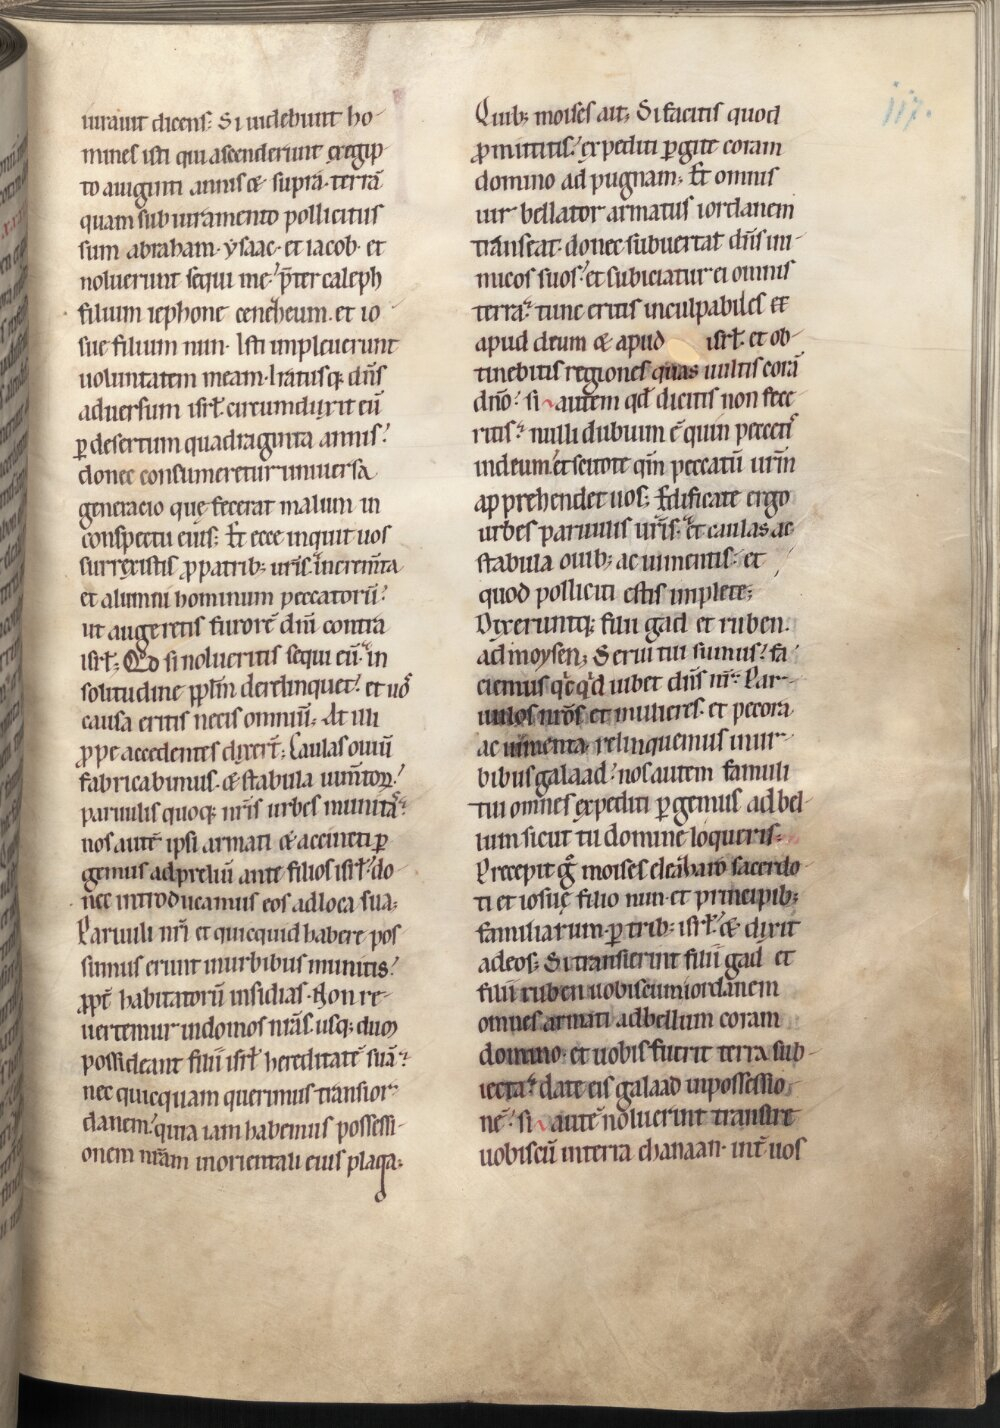 117.
iurauit dicens: Si uidebunt ho-
mines isti qui ascenderunt ex egip-
to a uiginti annis & supra· terrā
quam sub iuramento pollicitus
sum abraham· ysaac· et iacob· et
noluerunt sequi me· p̄ter caleph
filium iephone cenezeum· et io-
sue filium nun· Isti impleuerunt
uoluntatem meam· Iratusq; dn̄s
aduersum isrl̄· circumduxit eū
ꝑ desertum quadraginta annis·
donec consumeretur uniuersa
generacio quę fecerat malum in
conspectu eius; Et ecce inquit uos
surrexistis ꝓ patrib; ur̄is· increm̄ta
et alumni hominum peccatorū·
ut augeretis furorē dn̄i contra
isrl̄; Qd̄ si nolueritis sequi eū· in
solitudine ppl̄m derelinquet· et uos
causa eritis necis omniū; At illi
ꝓpe accedentes dixer̄t; Caulas ouiū
fabricabimus· & stabula ium̄toꝝ·
paruulis quoq; nr̄is urbes munitas·
nos autē ipsi armati & accincti ꝑ-
gemus ad preliū ante filios isrl̄· do-
nec introducamus eos ad loca sua;
Paruuli nr̄i et quicquid habere pos-
sumus erunt in urbibus munitis·
ꝓpt̄ habitatorū insidias· Non re-
uertemur in domos nr̄as· usq; dum
possideant filii isrl̄ hereditatē suā·
nec quicquam querimus trans ior-
danem· quia iam habemus possessi-
onem nr̄am in orientali eius plaga;
Quib; moises ait; Si facitis quod
ꝓmittitis· expediti ꝑgite coram
domino ad pugnam; Et omnis
uir bellator armatus iordanem
transeat· donec subuertat dn̄s ini-
micos suos· et subiciatur ei omnis
terra· tunc eritis inculpabiles et
apud deum & apud isrl̄· et ob-
tinebitis regiones quas uultis corā
dn̄o· si autem qd̄ dicitis non fece-
ritis· nulli dubium ē quin peccetis
in deum· et scitote qm̄ peccatū ur̄m
apprehendet uos; Edificate ergo
urbes paruulis ur̄is· et caulas ac
stabula ouib; ac iumentis· et
quod polliciti estis implete;
Dixeruntq; filii gad et ruben·
ad moysen; Serui tui sumus· fa-
ciemus qd̄ iubet dn̄s nr̄· Par-
uulos nr̄os et mulieres· et pecora
ac iumenta· relinquemus in ur-
bibus galaad· nos autem famuli
tui omnes expediti ꝑgemus ad bel-
lum sicut tu domine loqueris·
Precepit g° moises eleazaro sacerdo-
ti et iosue filio nun· et principib;
familiarum· ꝑ trib; isrl̄· & dixit
ad eos; Si transierint filii gad et
filii ruben uobiscum iordanem
omnes armati ad bellum coram
domino· et uobis fuerit terra sub-
iecta· date eis galaad in possessio-
nē· si autē noluerint transire
uobiscū in terra chanaan· int̄ uos